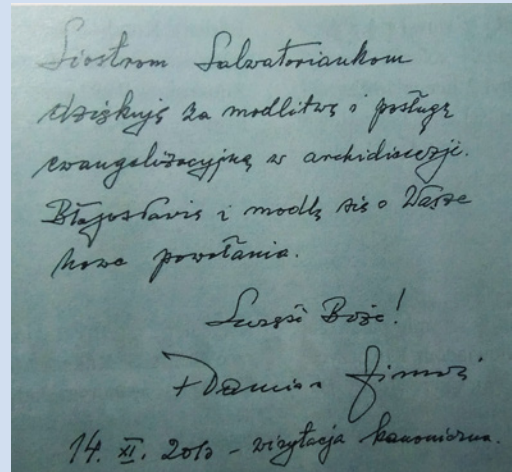 Siostrom Salwatoriankom
dziękuję za modlitwę i posługę
ewangelizacyjną w archidiecezji.
Błogosławię i modlę się o Wasze
nowe powołania.
Szczęść Boże!
+ Damian
14. XI. - wizytacja kanoniczna.